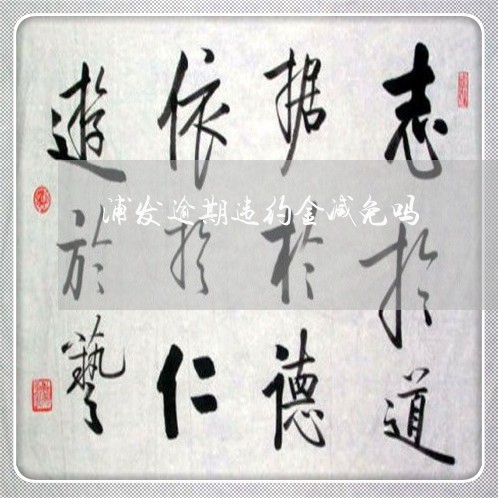 志於道
据於德
依於仁
遊於藝
浦发逾期违约金减免吗